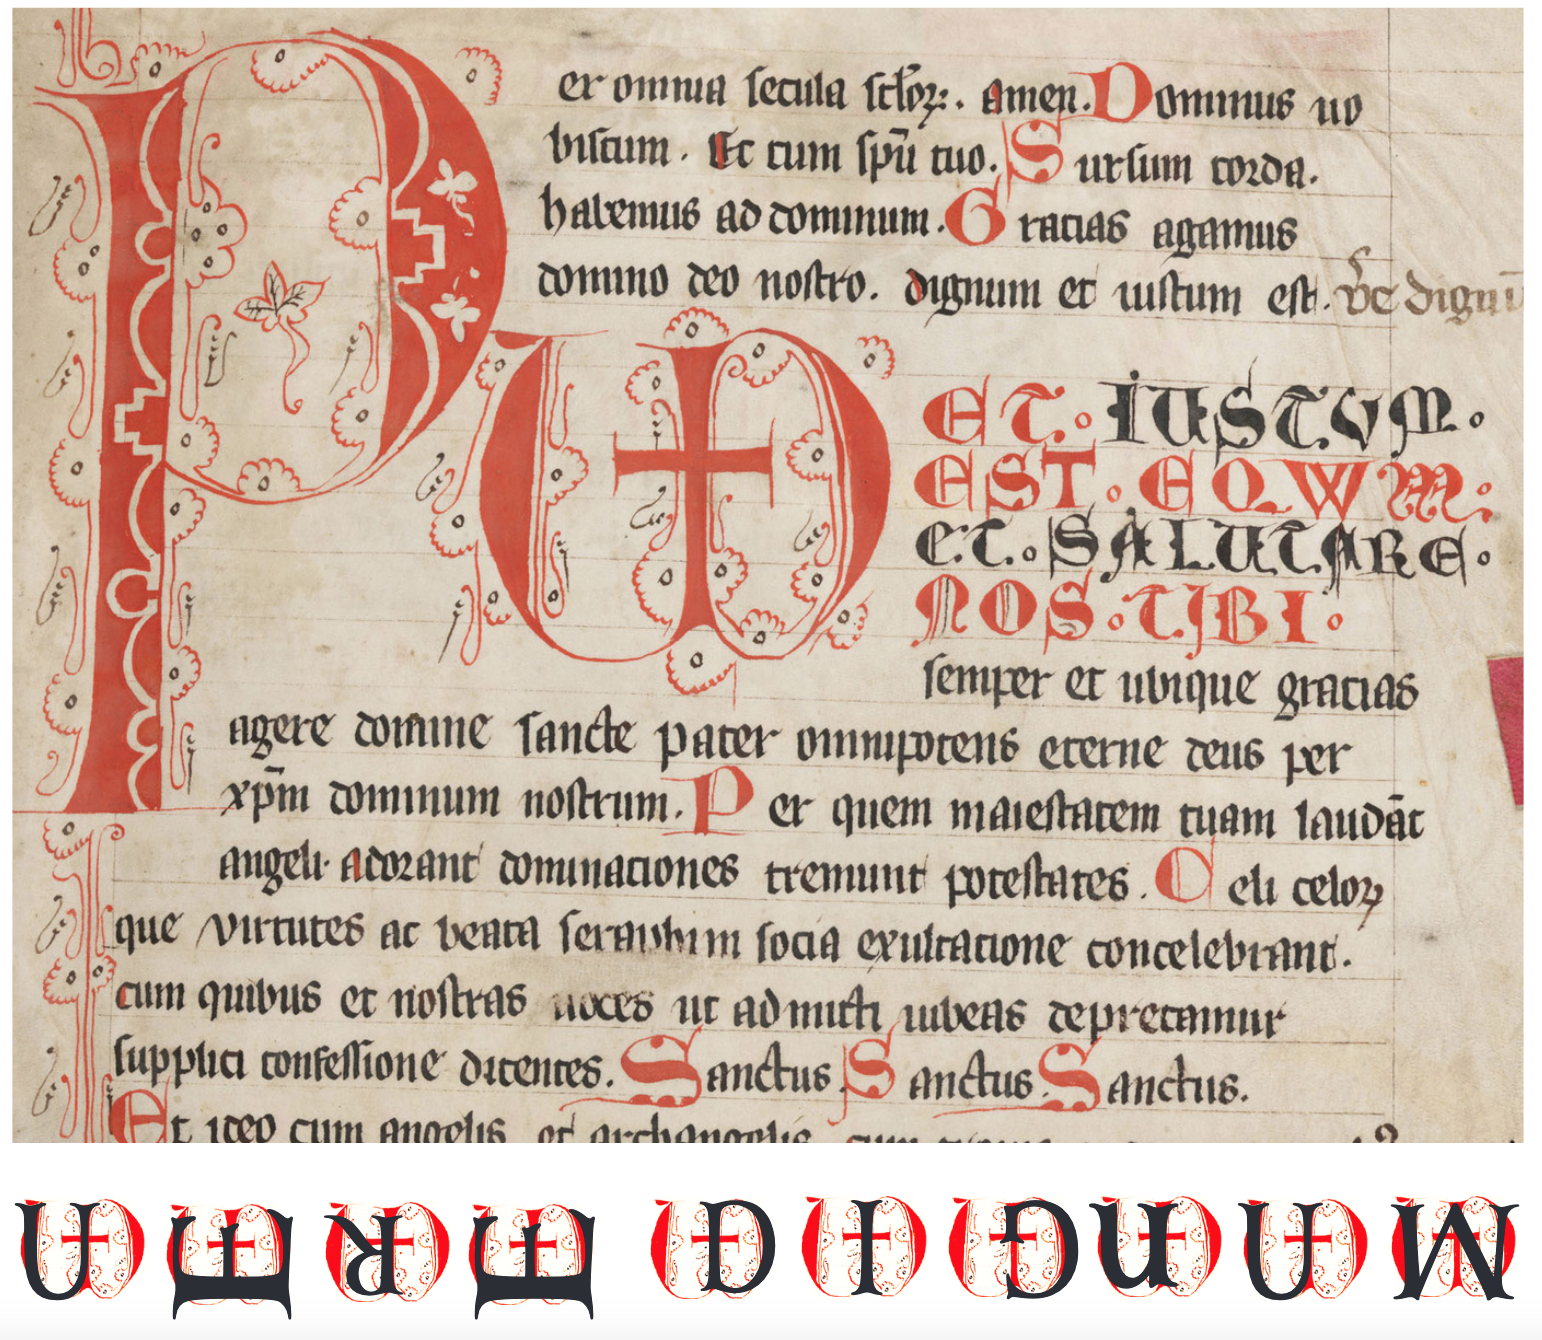 er omnia secula sclorꝝ. amen. Dominus uo
biscum. Et cum spū tuo. Sursum corda.
habemus ad dominum. Gracias agamus
domino deo nostro. dignum et iustum est. Ve dignū
ET. IUSTVM.
EST. EQWM:
ET. SALUTARE.
NOS. TIBI.
semper et ubique gracias
agere domine sancte pater omnipotens eterne deus per
xp̄m dominum nostrum. Per quem maiestatem tuam laudāt
angeli adorant dominaciones tremunt potestates. Celi celoꝝ
que virtutes ac beata seraphim socia exultacione concelebrant.
cum quibus et nostras uoces ut admitti iubeas deprecamur
supplici confessione dicentes. Sanctus Sanctus. Sanctus.
Et ideo cum angelis et archangelis cum
UERE DIGNUM